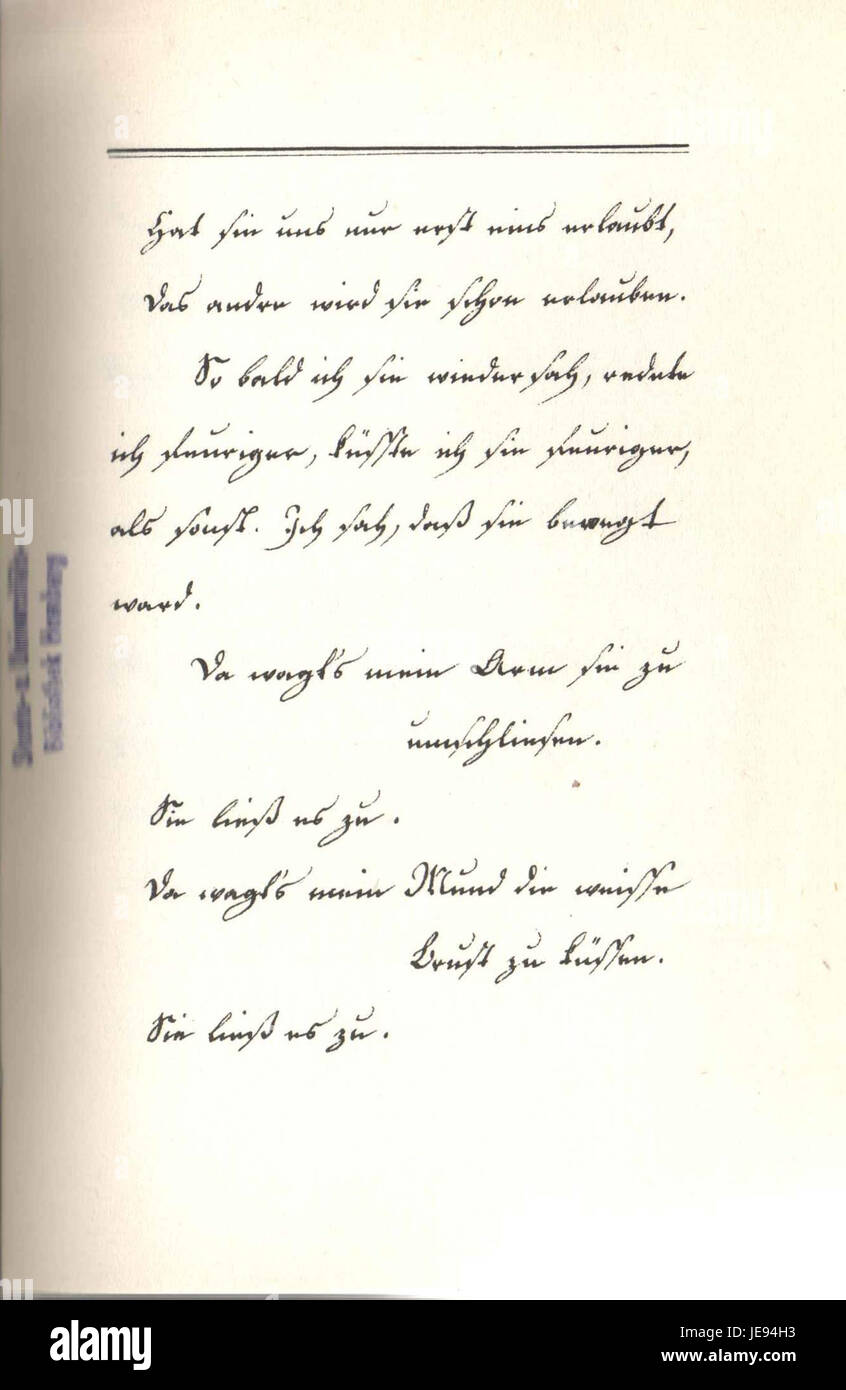 Hat sie uns nur erst eins erlaubt,
Das andre wird sie schon erlauben.
So bald ich sie wiedersah, redete
ich feuriger, küsste ich sie feuriger,
als sonst. Ich sah, daß sie bewegt
ward.
Da wagt's mein Arm sie zu
umschliesen.
Sie ließ es zu.
Da wagt's mein Mund die weisse
Brust zu küssen.
Sie ließ es zu.
Bibliothek
a alamy
Image ID: JE94H3
www.alamy.com